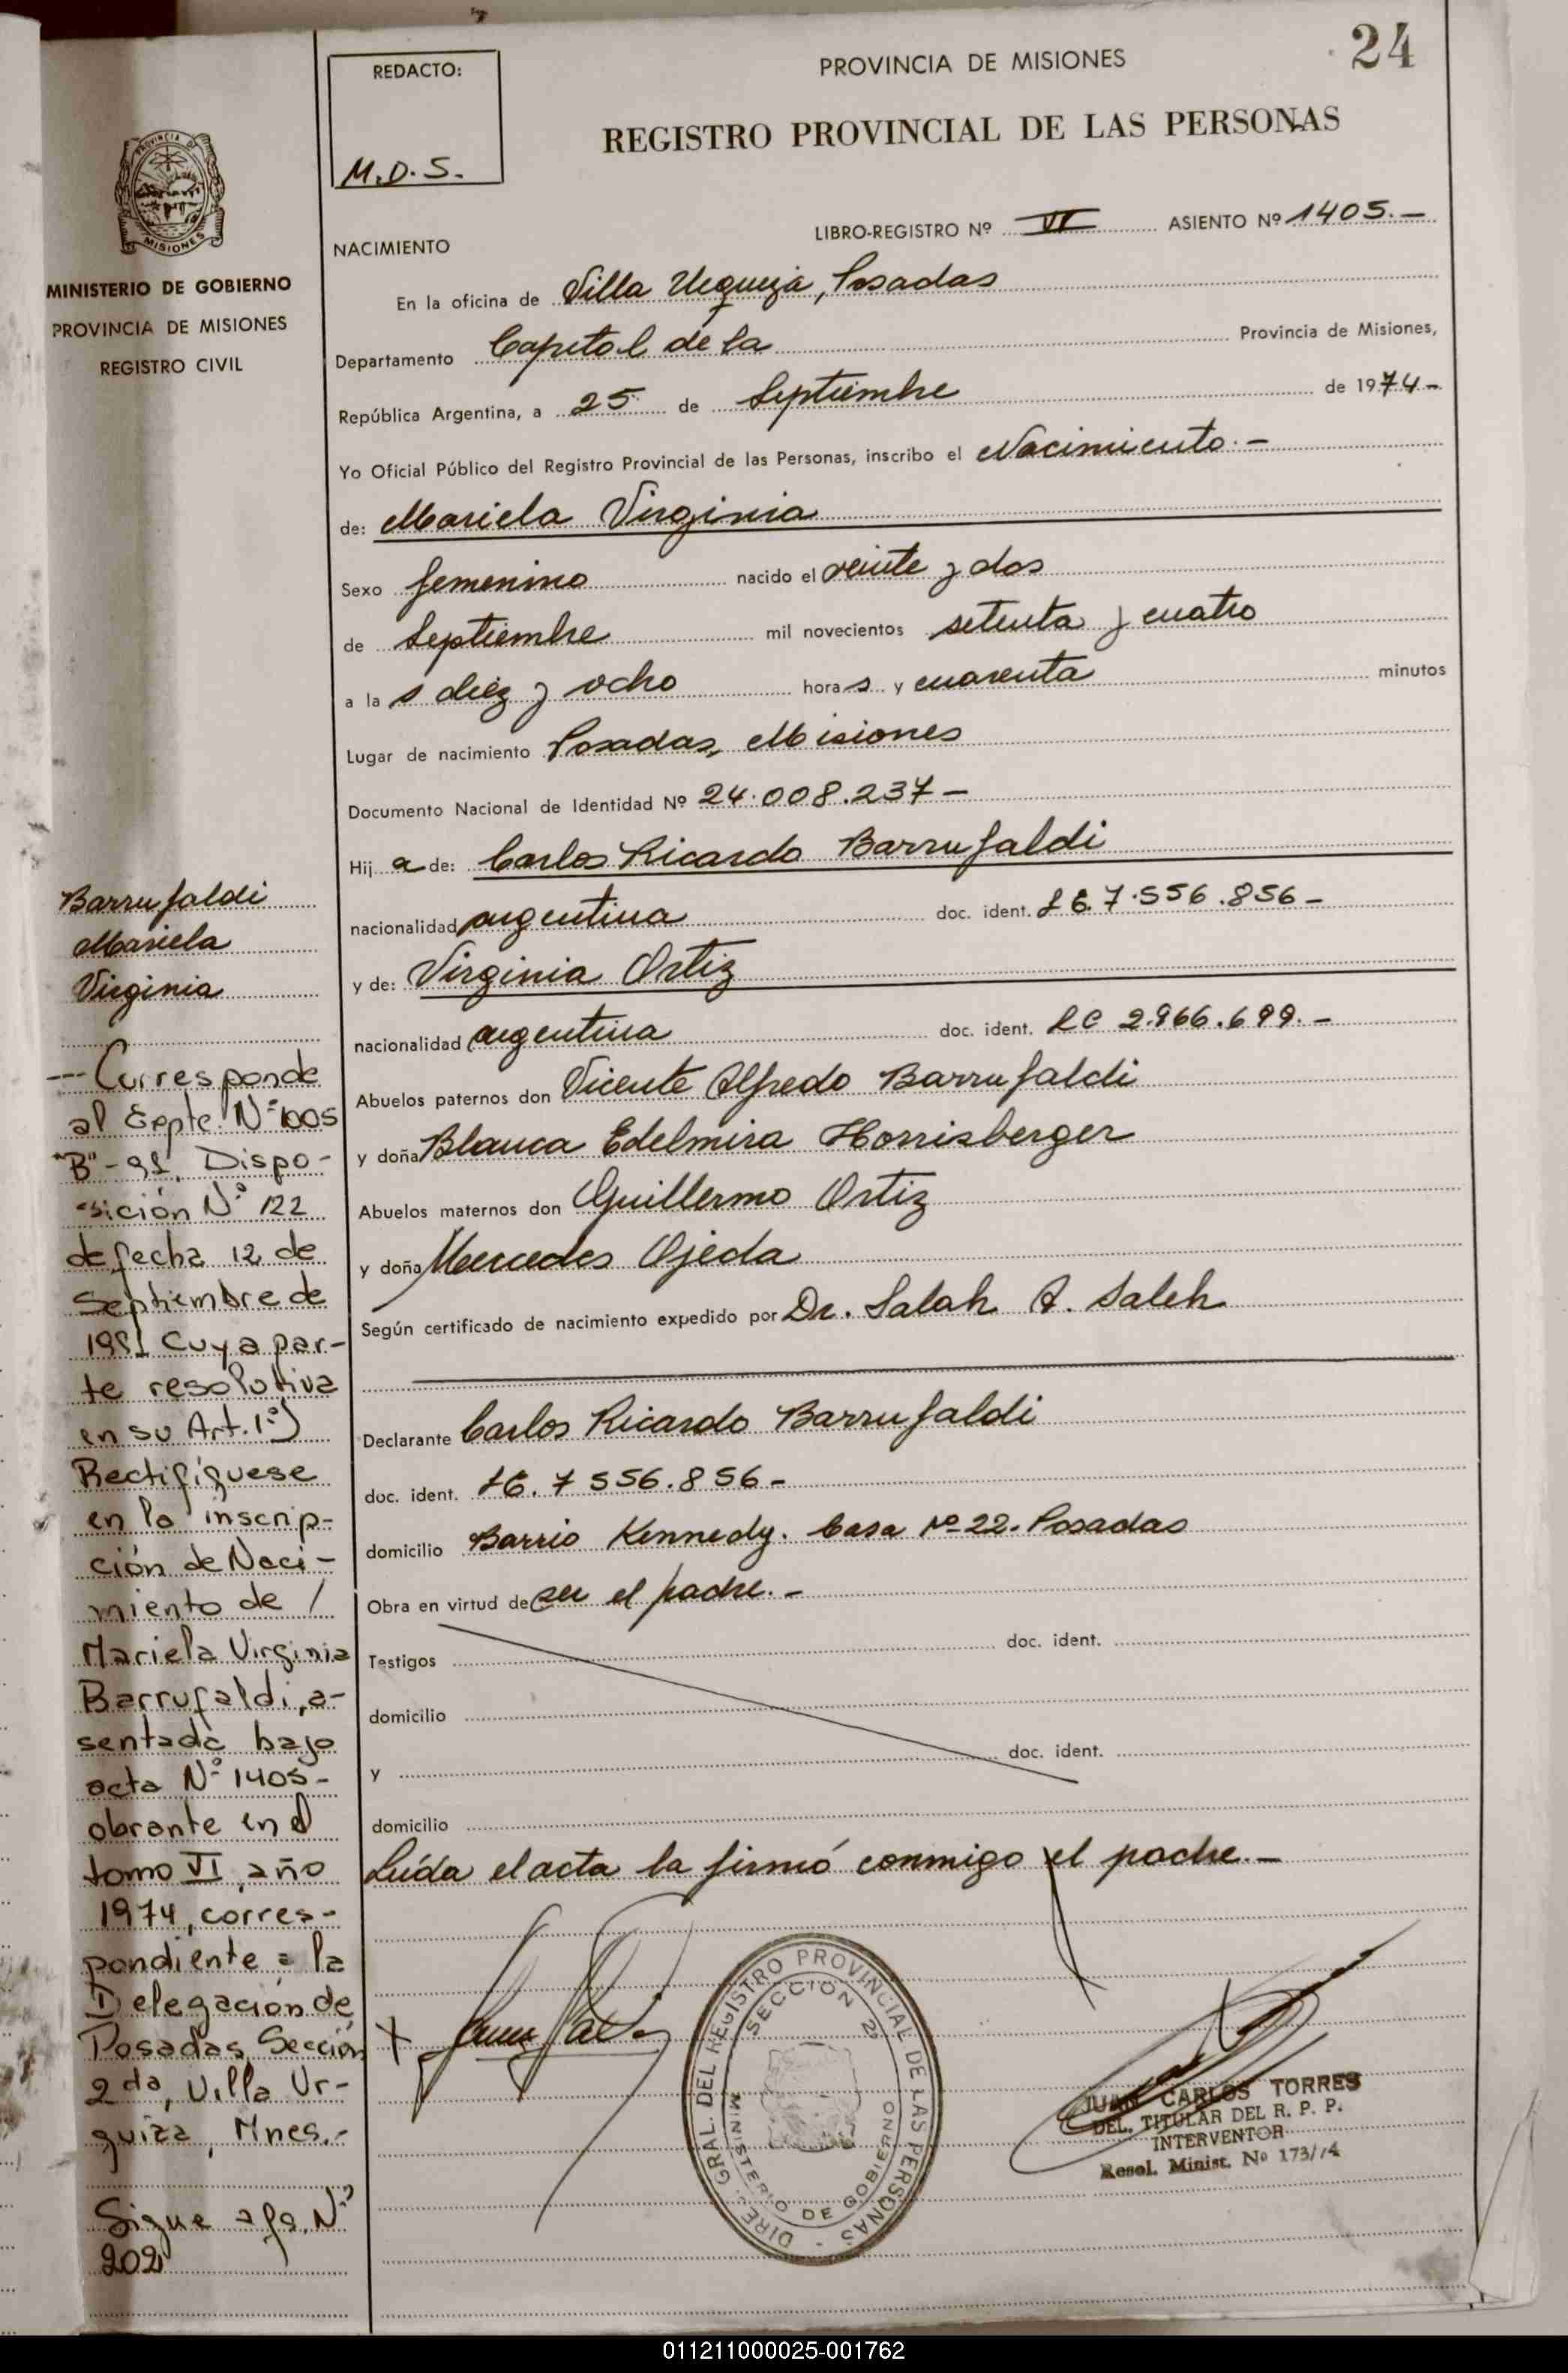 24
REDACTO:
M.D.S.
PROVINCIA DE MISIONES
REGISTRO PROVINCIAL DE LAS PERSONAS
PROVINCIA D
MISIONES
MINISTERIO DE GOBIERNO
PROVINCIA DE MISIONES
REGISTRO CIVIL
LIBRO-REGISTRO Nº VI ASIENTO Nº 1405.-
NACIMIENTO
En la oficina de Villa Urquiza, Posadas
Departamento Capital de la Provincia de Misiones,
República Argentina, a 25 de Septiembre de 1974-
Yo Oficial Público del Registro Provincial de las Personas, inscribo el Nacimiento.-
de: Mariela Virginia
Sexo femenino nacido el veinte y dos
de Septiembre mil novecientos setenta y cuatro
a las diez y ocho horas y cuarenta minutos
Lugar de nacimiento Posadas, Misiones
Documento Nacional de Identidad Nº 24.008.237-
Hija de: Carlos Ricardo Barrufaldi
nacionalidad argentina doc. ident. LE. 7.556.856-
y de: Virginia Ortiz
nacionalidad argentina doc. ident. LC 2.966.699.-
Abuelos paternos don Vicente Alfredo Barrufaldi
y doña Blanca Edelmira Horrisberger
Abuelos maternos don Guillermo Ortiz
y doña Mercedes Ojeda
Según certificado de nacimiento expedido por Dr. Salah A. Saleh
Declarante Carlos Ricardo Barrufaldi
doc. ident. LE. 7 556.856-
domicilio Barrio Kennedy. Casa Nº 22. Posadas
Obra en virtud de ser el padre.-
Testigos doc. ident.
domicilio
y doc. ident.
domicilio
Leída el acta la firmó conmigo el padre.-
Barrufaldi
Mariela
Virginia
--- Corresponde
al Expte. Nº 1005
"B"-91. Dispo-
sición Nº 122
de fecha 12 de
Septiembre de
1991 Cuya par-
te resolutiva
en su Art. 1º)
Rectifíquese
en la inscrip-
ción de Naci-
miento de /
Mariela Virginia
Barrufaldi, a-
sentada bajo
acta Nº 1405-
obrante en el
tomo VI, año
1974, corres-
pondiente a la
Delegación de
Posadas Sección
2da, Villa Ur-
quiza, Mnes.-
Sigue a fs. Nº
202
DIREC. GRAL. DEL REGISTRO PROVINCIAL DE LAS PERSONAS
SECCION 2ª
MINISTERIO DE GOBIERNO
JUAN CARLOS TORRES
DEL. TITULAR DEL R. P. P.
INTERVENTOR
Resol. Minist. Nº 173/74
011211000025-001762